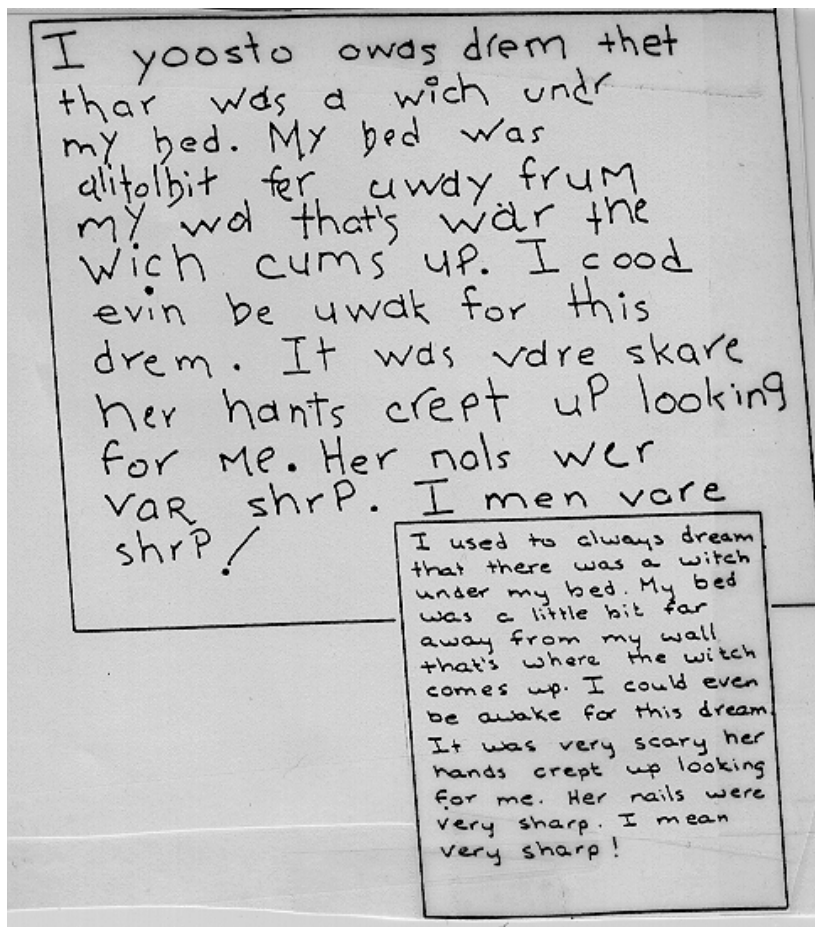 I yoosto owas drem thet
thar was a wich undr
my bed. My bed was
alitolbit fer uway frum
my wol that's wär the
wich cums up. I cood
evin be uwak for this
drem. It was vare skare
her hants crept up looking
for me. Her nals wer
vaR shrP. I men vare
shrP!
I used to always dream
that there was a witch
under my bed. My bed
was a little bit far
away from my wall
that's where the witch
comes up. I could even
be awake for this dream.
It was very scary her
hands crept up looking
for me. Her nails were
very sharp. I mean
very sharp!